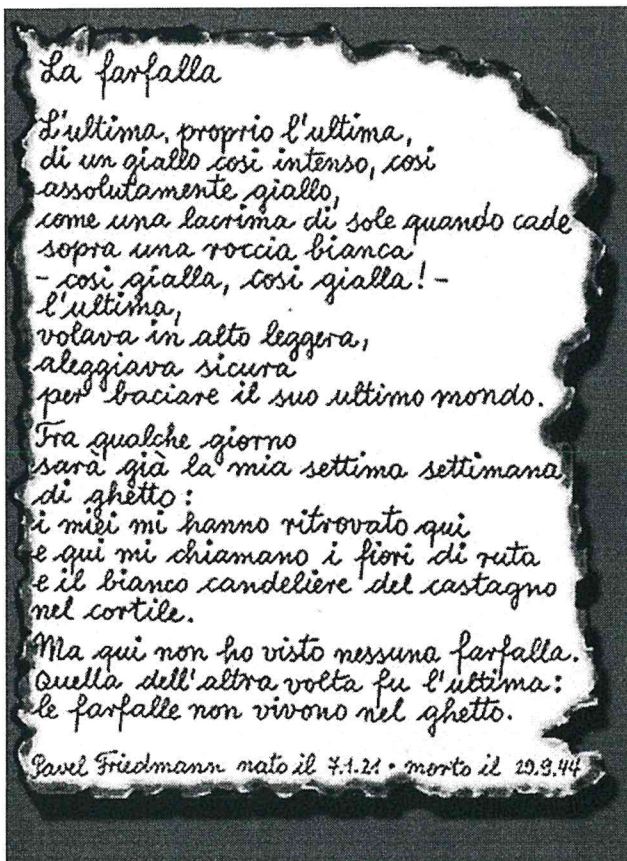 La farfalla
L'ultima, proprio l'ultima,
di un giallo così intenso, così
assolutamente giallo,
come una lacrima di sole quando cade
sopra una roccia bianca
- così gialla, così gialla! -
l'ultima,
volava in alto leggera,
aleggiava sicura
per baciare il suo ultimo mondo.
Fra qualche giorno
sarà già la mia settima settimana
di ghetto:
i miei mi hanno ritrovato qui
e qui mi chiamano i fiori di ruta
e il bianco candeliere del castagno
nel cortile.
Ma qui non ho visto nessuna farfalla.
Quella dell'altra volta fu l'ultima:
le farfalle non vivono nel ghetto.
Pavel Friedmann nato il 7.1.21 • morto il 29.9.44